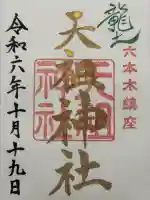 龍土
六本木鎮座
天祖神社
天祖
神社
令和六年十月十九日